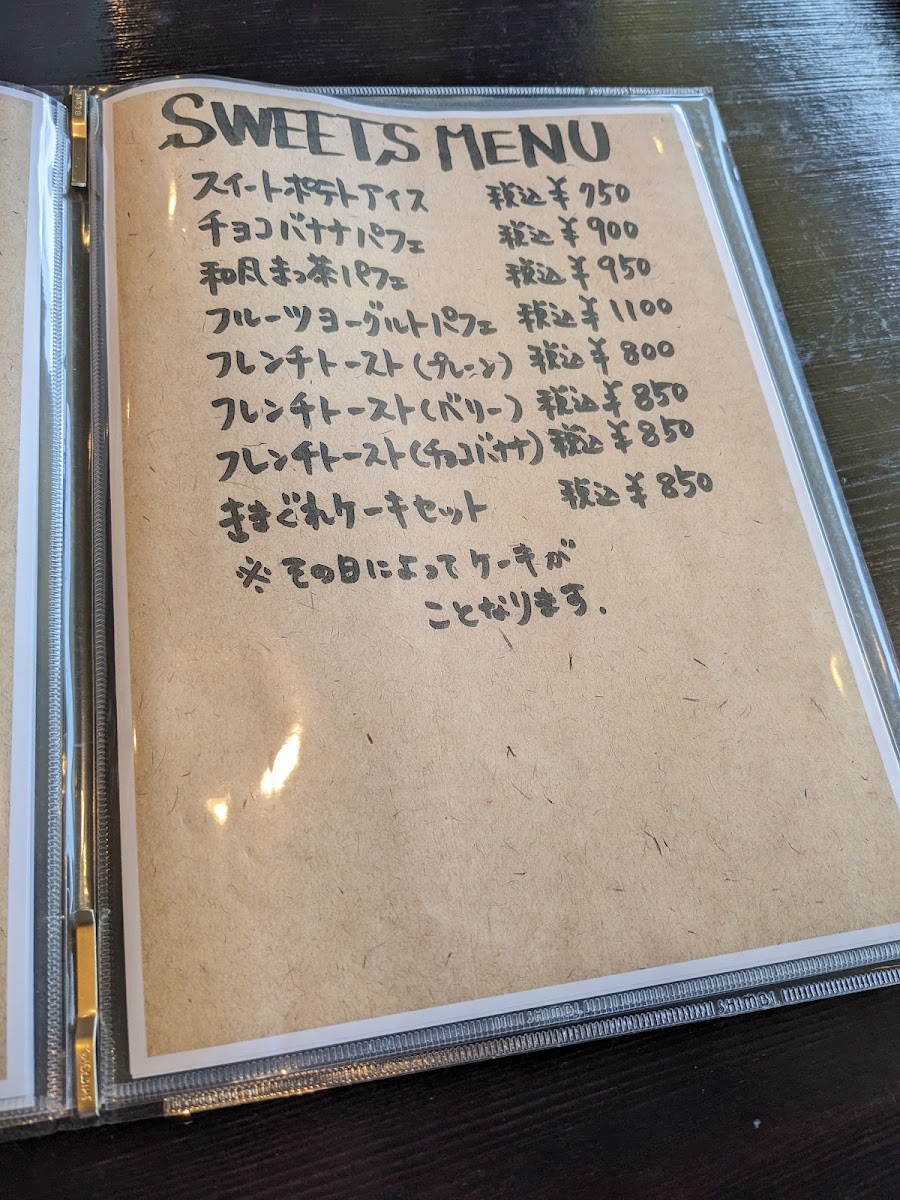 SWEETS MENU
スイートポテトアイス 税込¥750
チョコバナナパフェ 税込¥900
和風まっ茶パフェ 税込¥950
フルーツヨーグルトパフェ 税込¥1100
フレンチトースト(プレーン) 税込¥800
フレンチトースト(ベリー) 税込¥850
フレンチトースト(チョコバナナ) 税込¥850
きまぐれケーキセット 税込¥850
※その日によってケーキが
ことなります.